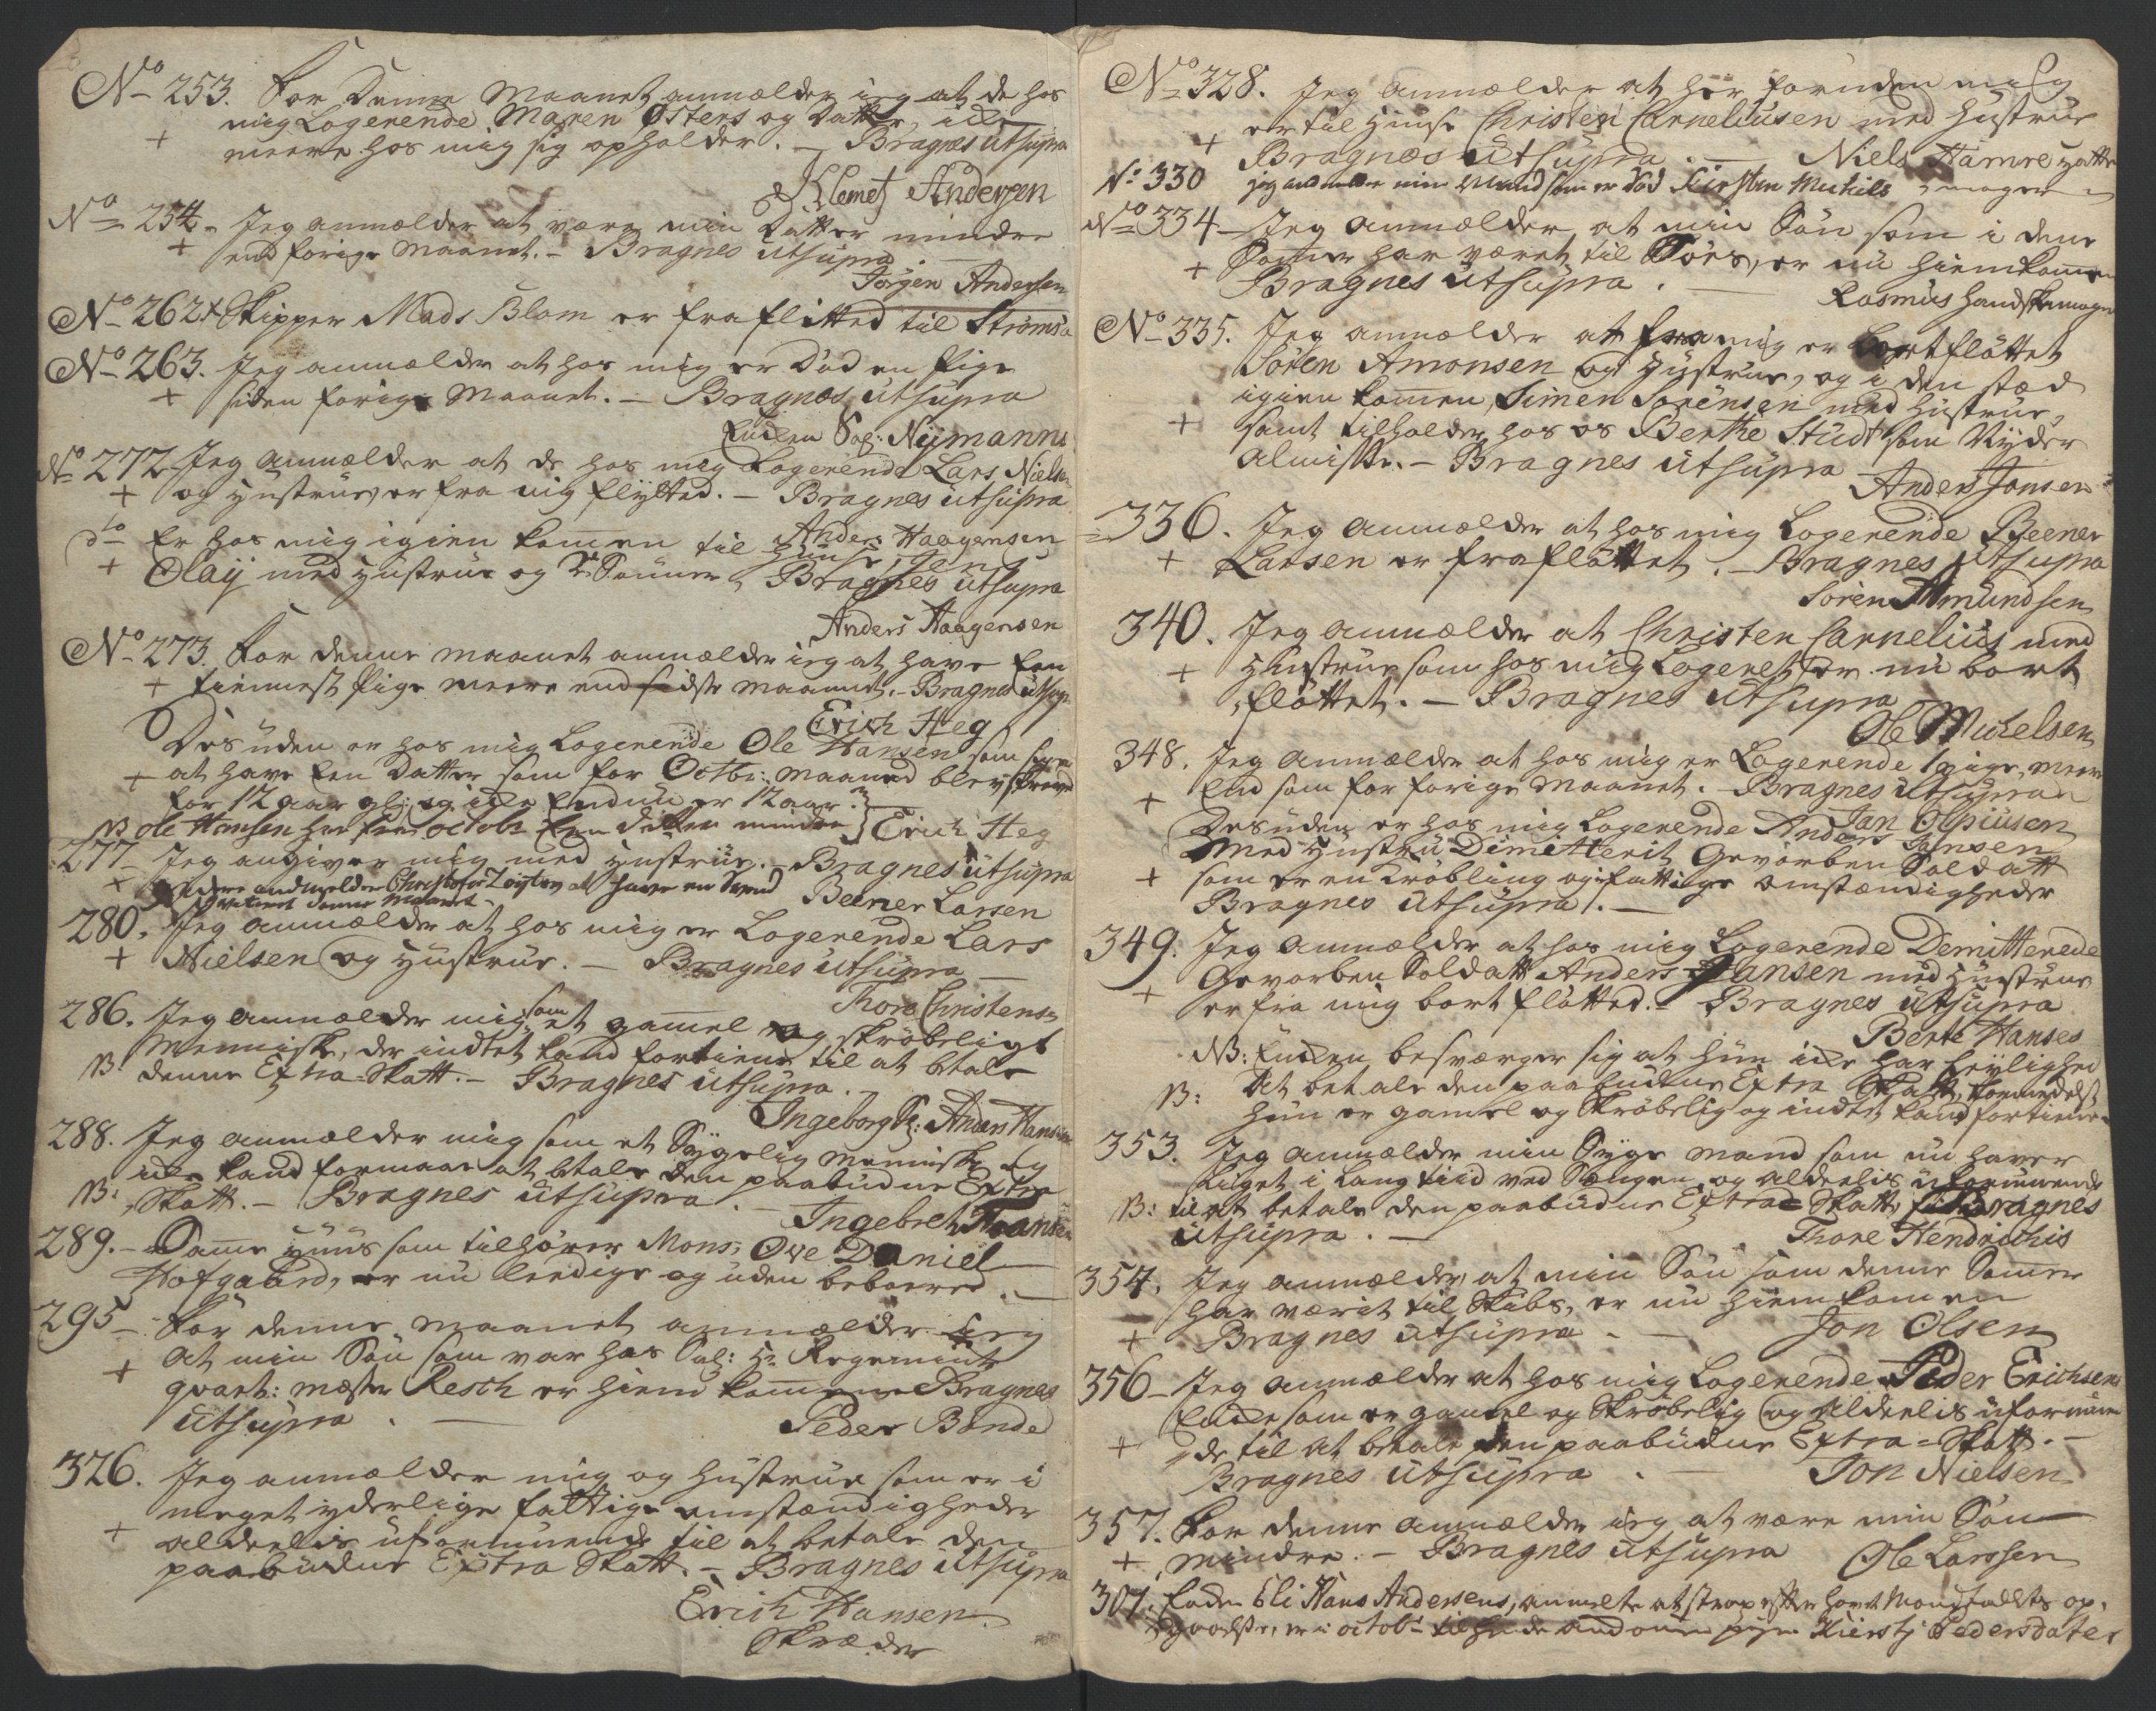 No 253. For Denne Maanet anmælder ieg at de hos
mig Logerende Maren Østers og Datter, icke
+ meere hos mig sig opholder. – Bragnes utsupra
Klemet Andersen
No 254. Jeg anmælder at være min Datter mindre
+ end forige Maanet. – Bragnes utsupra.
Jörgen Andersen
No 262 + Skipper Mads Blom er fraflötted til Strömsöe
No 263. Jeg anmælder at hos mig er Död en Pige
+ siden forige Maanet. – Bragnes utsupra
Encken Sal: Nijmanns
No 272 Jeg anmælder at de hos mig Logerende Lars Nielsen
+ og Hustrue, er fra mig flytted. – Bragnes utsupra
Anders Haagensen
dto Er hos mig igien kommen til Huuse, Jens
+ Olaij med Hustrue og 2 Sönner, Bragnes utsupra
Anders Haagensen
No 273. For denne Maanet anmælder ieg at have Een
+ tienneste Pige meere end sidste Maanet. – Bragnes utsupra
Erich Heg
Desuden er hos mig Logerende Ole Hansen som
+ at have Een Datter som for Octbr: Maaned blev skreved
for 12 aar gl: og icke Endnu er 12 aar.
NB Ole Hansen har for octobr Een datter mindre } Erich Heg
277 – Jeg angiver mig med Hustrue. – Bragnes utsupra
+ andmelder Christofer at have en Svend
denne Maanet – Beener Larsen
280. Jeg anmælder at hos mig er Logerende Lars
+ Nielsen og Hustrue. – Bragnes utsupra –
Thore Christensen
286. Jeg anmælder mig som et gamel og skröbeligt
Menniske, der indtet kand fortiene til at btale
NB: denne Extra-Skatt. – Bragnes utsupra. –
Ingeborg Sl: Anders Hansens
288. Jeg anmælder mig som et Sygelig Menniske og
icke kand formaae at btale den paabudne Extra
NB: Skatt. – Bragnes utsupra. –
Ingebret Haansen
289. – Samme Huus som tilhörer Mons: Ove Daniel
Hofgaard, er nu leedige og uden beboere. –
295 – For denne Maanet anmælder ieg
+ at min Sön som var hos Sal: Hr Regements
qvart: mester Resch er hiem kommen Bragnes
utsupra. –
Peder Bonde
326. Jeg anmælder mig og Hustrue som er i
meget yderlige fattige omstændigheder
+ alderlis uformuende til at betale den
paabudne Extra Skatt. – Bragnes utsupra
Erich Hansen
Skræder
No 328. Jeg anmælder at her foruden mig
+ er til Huuse Christen Carneliusen med Hustrue
Bragnes utsupra. – Niels Hamre Hatte
No 330 jeg anmelder min Mand som er död Kirsten Michels mager
No 334 – Jeg anmælder, at min Sön som i denne
+ Sommer har været til Söes, er nu hiemkommen
Bragnes utsupra. –
Rasmus Handskemager
No 335. Jeg anmælder at fra mig er bortflöttet
Sören Amonsen og Hustrue, og i den stæd
igien kommen, Simen Sörensen med Hustrue,
+ samt tilholder hos os Berthe Studt som Nyder
Almisse. – Bragnes utsupra
Anders Jonsen
336. Jeg anmælder at hos mig Logerende Beener
+ Larsen er fraflöttet. – Bragnes utsupra
Sören Amundsen
340. Jeg anmælder at Christen Carnelius med
+ Hustrue som hos mig Logeret, er nu bort
flöttet. – Bragnes utsupra
Ole Michelsen
348. Jeg anmælder at hos mig er Logerende 1 pige, meere
+ End som for forige Maanet. – Bragnes utsupra
Jan Olsen
Desuden er hos mig Logerende Anders Jansen
med Hustru Dimitterit Gevorben Soldatt
+ som er en Kröbling og i fattige omstændigheder
Bragnes utsupra. –
349. Jeg anmælder at hos mig Logerende Demitterede
Gevorben Soldatt Anders Jansen med Hustrue
+ er fra mig bort flötted. – Bragnes utsupra
Berte Hanses
NB: Encken besværger sig at hun icke har Leylighed
NB: At betale den paabudne Extra Skatt, formedelst
hun er gamel og Skröbelig og indtet kand fortiene
353. Jeg anmælder min Syge Mand som nu haver
Liiget i Lang tiid ved Sengen, og alderlis uformuende
NB: til at betale den paabudne Extra Skatt, Bragnes
utsupra. –
Thore Hendrichis
354. Jeg anmælder, at min Sön som denne Sommer
har værit til Skibs, er nu hiemkommen
+ Bragnes utsupra. –
Jon Olsen
356 – Jeg anmælder at hos mig Logerende Peder Erichsens
Encke som er gamel og Skröbelig og Alderlis uformuen
+ de til At betale den paabudne Extra-Skatt. –
Bragnes utsupra. –
Jon Nielsen
357. For denne anmælder ieg at være min Sön
+ mindre. – Bragnes utsupra
Ole Larssen
307. Enden Eli Hans Andersens, anmelte at strax efter havt Mandtallets op,
er i octob: Kiersti Pedersdater